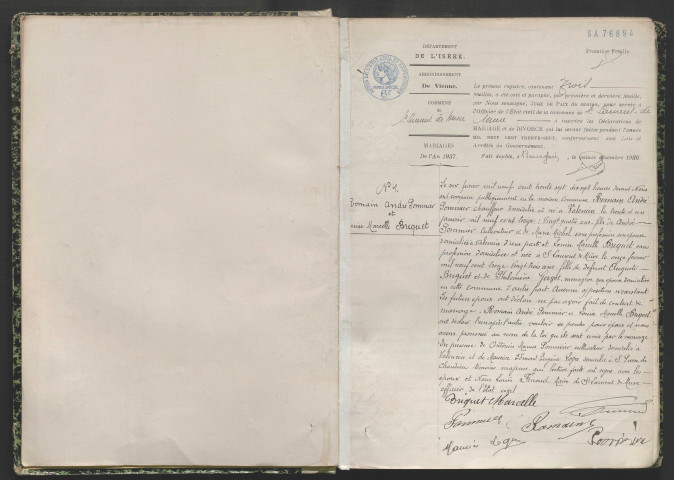 6A76894
DÉPARTEMENT
DE L'ISÈRE.
ARRONDISSEMENT
De Vienne.
COMMUNE
de
St Laurent de Mure
MARIAGES
De l'An 1937.
Première Feuille
Le présent registre, contenant Trois
feuilles, a été coté et paraphé, par première et dernière feuille,
par Nous soussigné, Juge de Paix du canton, pour servir à
l'Officier de l'État civil de la commune de St Laurent de
Mure à inscrire les Déclarations de
MARIAGE et de DIVORCE qui lui seront faites pendant l'année
MIL NEUF CENT TRENTE-SEPT, conformément aux Lois et
Arrêtés du Gouvernement.
Fait double, à le quinze décembre 1936.
N° 1.
Romain André Pommier
et
Louise Marcelle Briguet
Le six mil neuf cent trente sept heures devant Nous
ont comparu publiquement en la maison commune Romain André
Pommier chauffeur domicilié et né à Valencin le trente et un
janvier mil neuf cent treize, vingt quatre ans, fils de André
Pommier cultivateur et de Marie Michel sans profession son épouse
domiciliés à Valencin d'une part et Louise Marcelle Briguet sans
profession domiciliée et née à St Laurent de Mure le onze février
mil neuf cent treize vingt trois ans fille de défunt Auguste
Briguet et de Philomène ménagère son épouse domiciliée
en cette commune d'autre part Aucune opposition n'existant
les futurs époux ont déclaré ne pas avoir fait de contrat de
mariage. Romain André Pommier et Louise Marcelle Briguet
ont déclaré l'un après l'autre vouloir se prendre pour époux et nous
avons prononcé au nom de la loi qu'ils sont unis par le mariage
En présence de Pommier cultivateur domicilié à
Valencin et de Maurice domicilié à St
témoins majeurs qui lecture faite ont signé avec les
époux et Nous Louis Maire de St Laurent de Mure
officier de l'état civil
Briguet Marcelle
Pommier Romain
Maurice